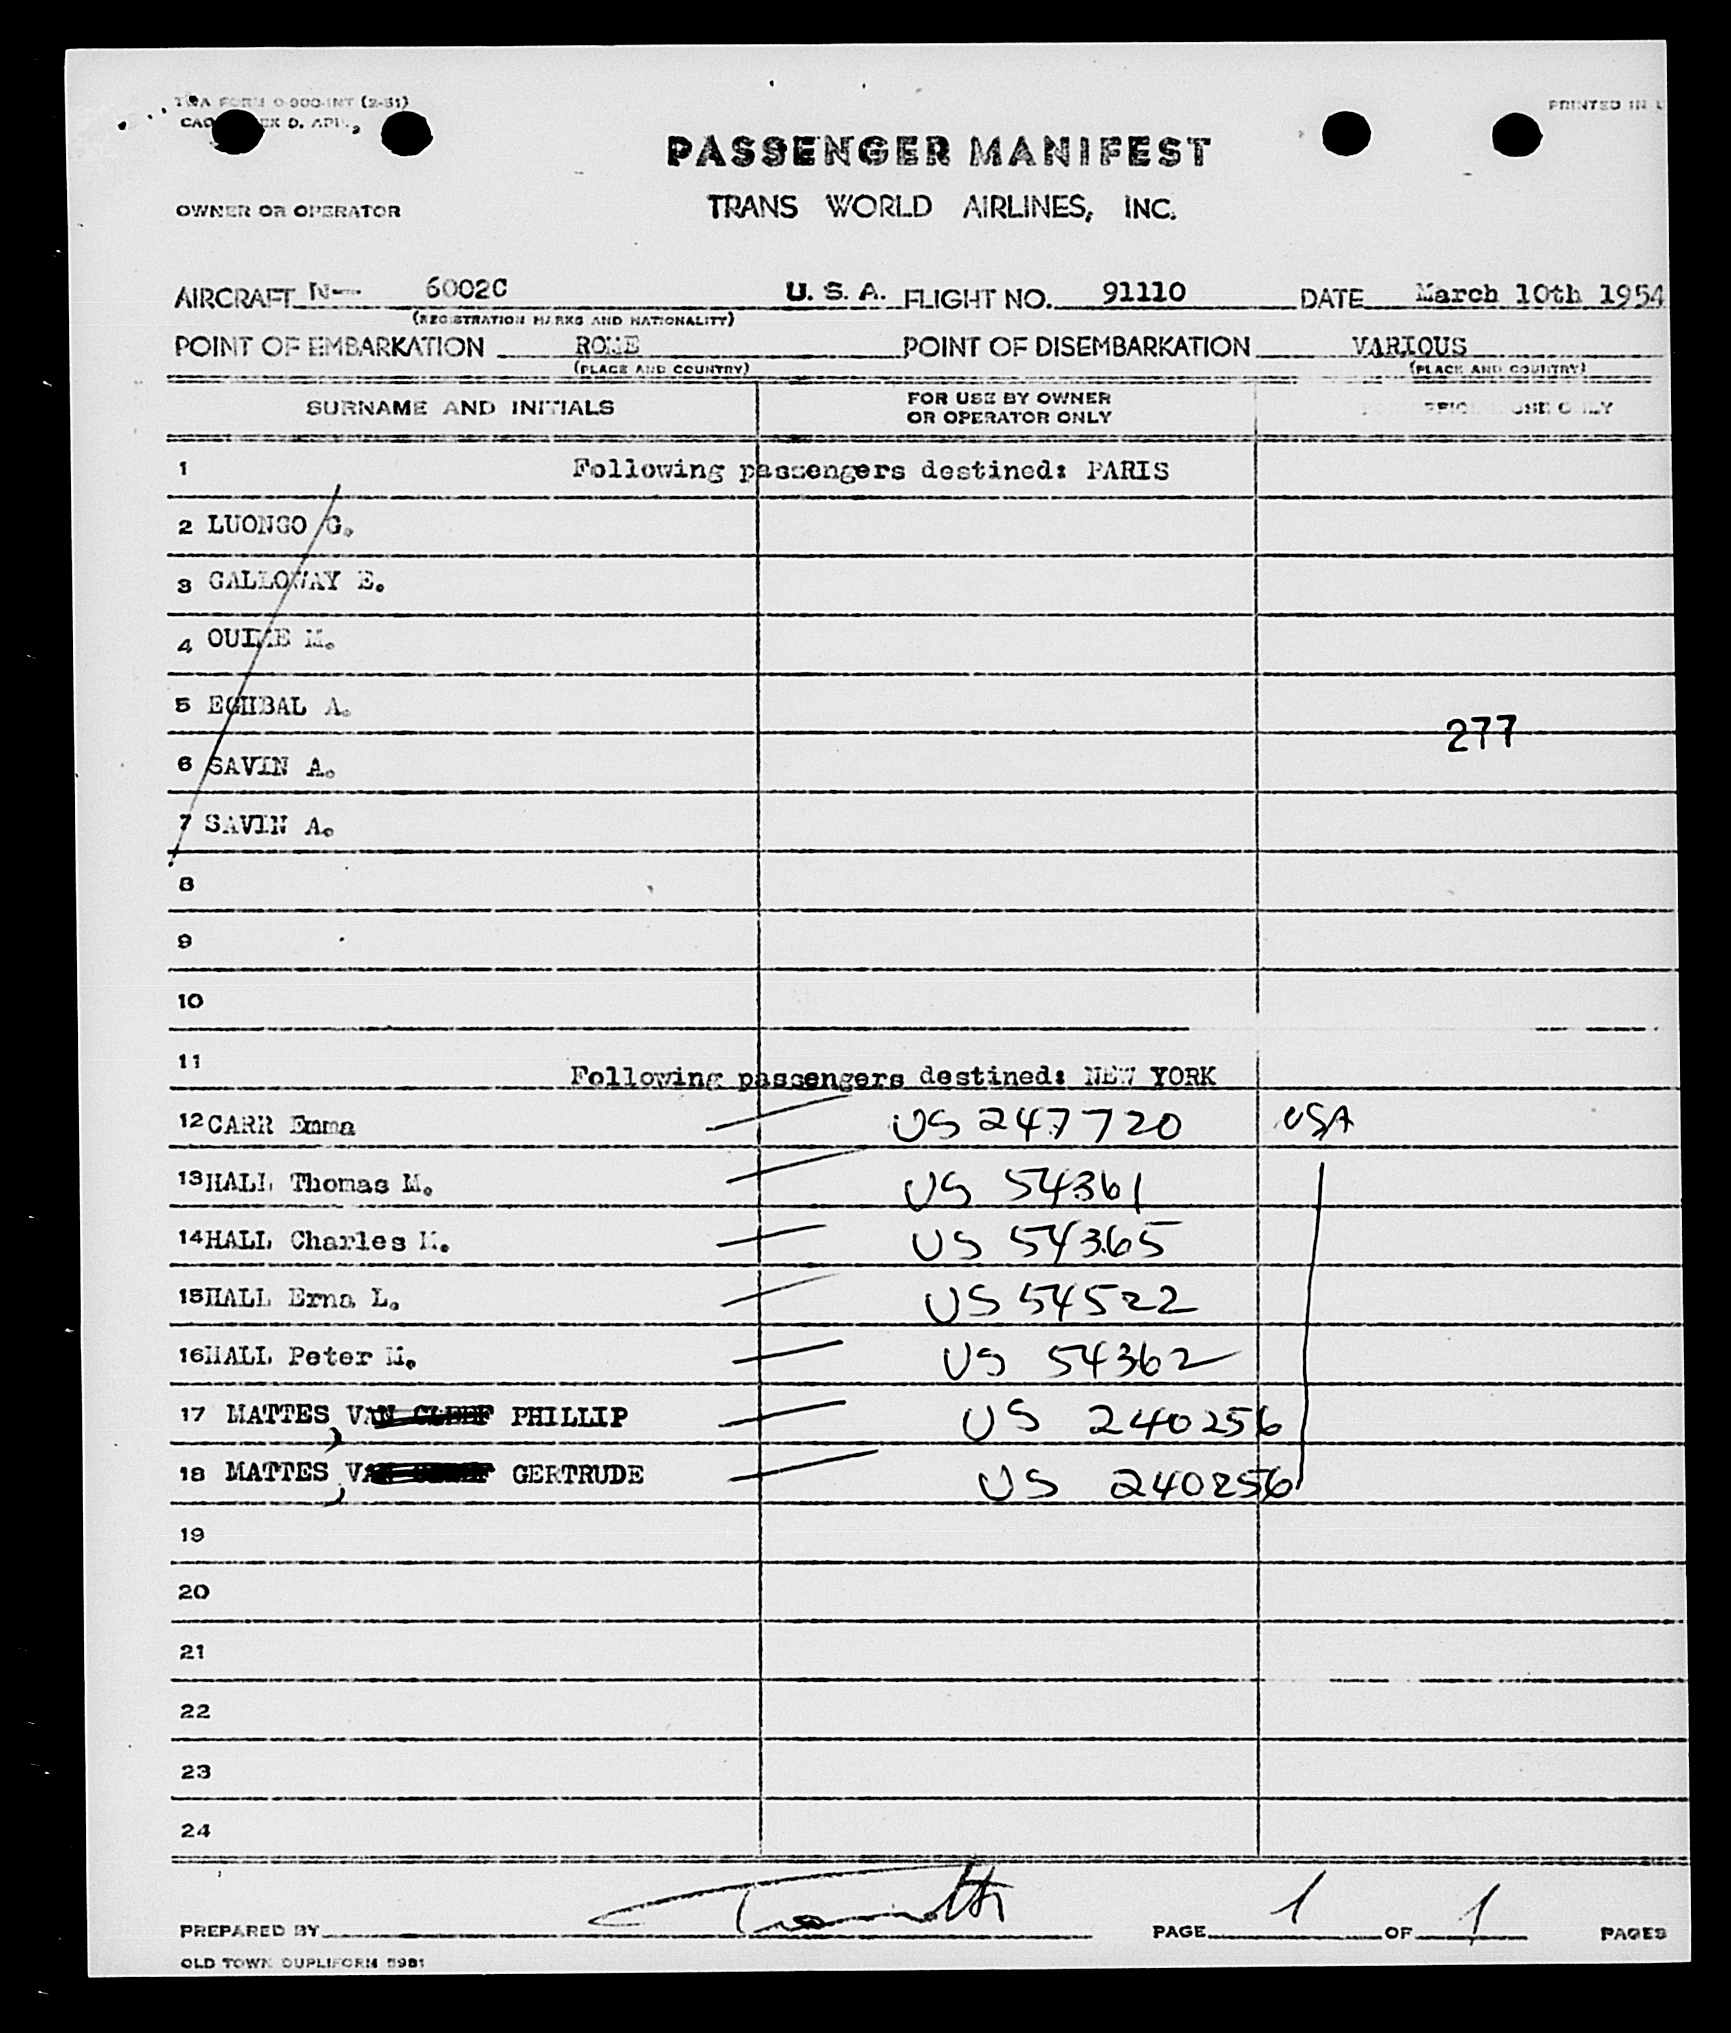 TWA FORM O-300-INT (2-51)
PRINTED IN U
PASSENGER MANIFEST
OWNER OR OPERATOR
TRANS WORLD AIRLINES, INC.
AIRCRAFT N- 6002C U. S. A. FLIGHT NO. 91110 DATE March 10th 1954
(REGISTRATION MARKS AND NATIONALITY)
POINT OF EMBARKATION ROME POINT OF DISEMBARKATION VARIOUS
(PLACE AND COUNTRY) (PLACE AND COUNTRY)
SURNAME AND INITIALS FOR USE BY OWNER OR OPERATOR ONLY USE ONLY
1 Following passengers destined: PARIS
2 LUONGO G.
3 GALLOWAY E.
4 M.
5 EGHBAL A.
277
6 SAVIN A.
7 SAVIN A.
8
9
10
11 Following passengers destined: NEW YORK
12 CARR Emma US 247720 USA
13 HALL Thomas M. US 54361
14 HALL Charles M. US 54365
15 HALL Erna L. US 54522
16 HALL Peter M. US 54362
17 MATTES, VAN CLEEF PHILLIP US 240256
18 MATTES, VAN GERTRUDE US 240256
19
20
21
22
23
24
PREPARED BY PAGE 1 OF 1 PAGES
OLD TOWN DUPLIFORM 5981